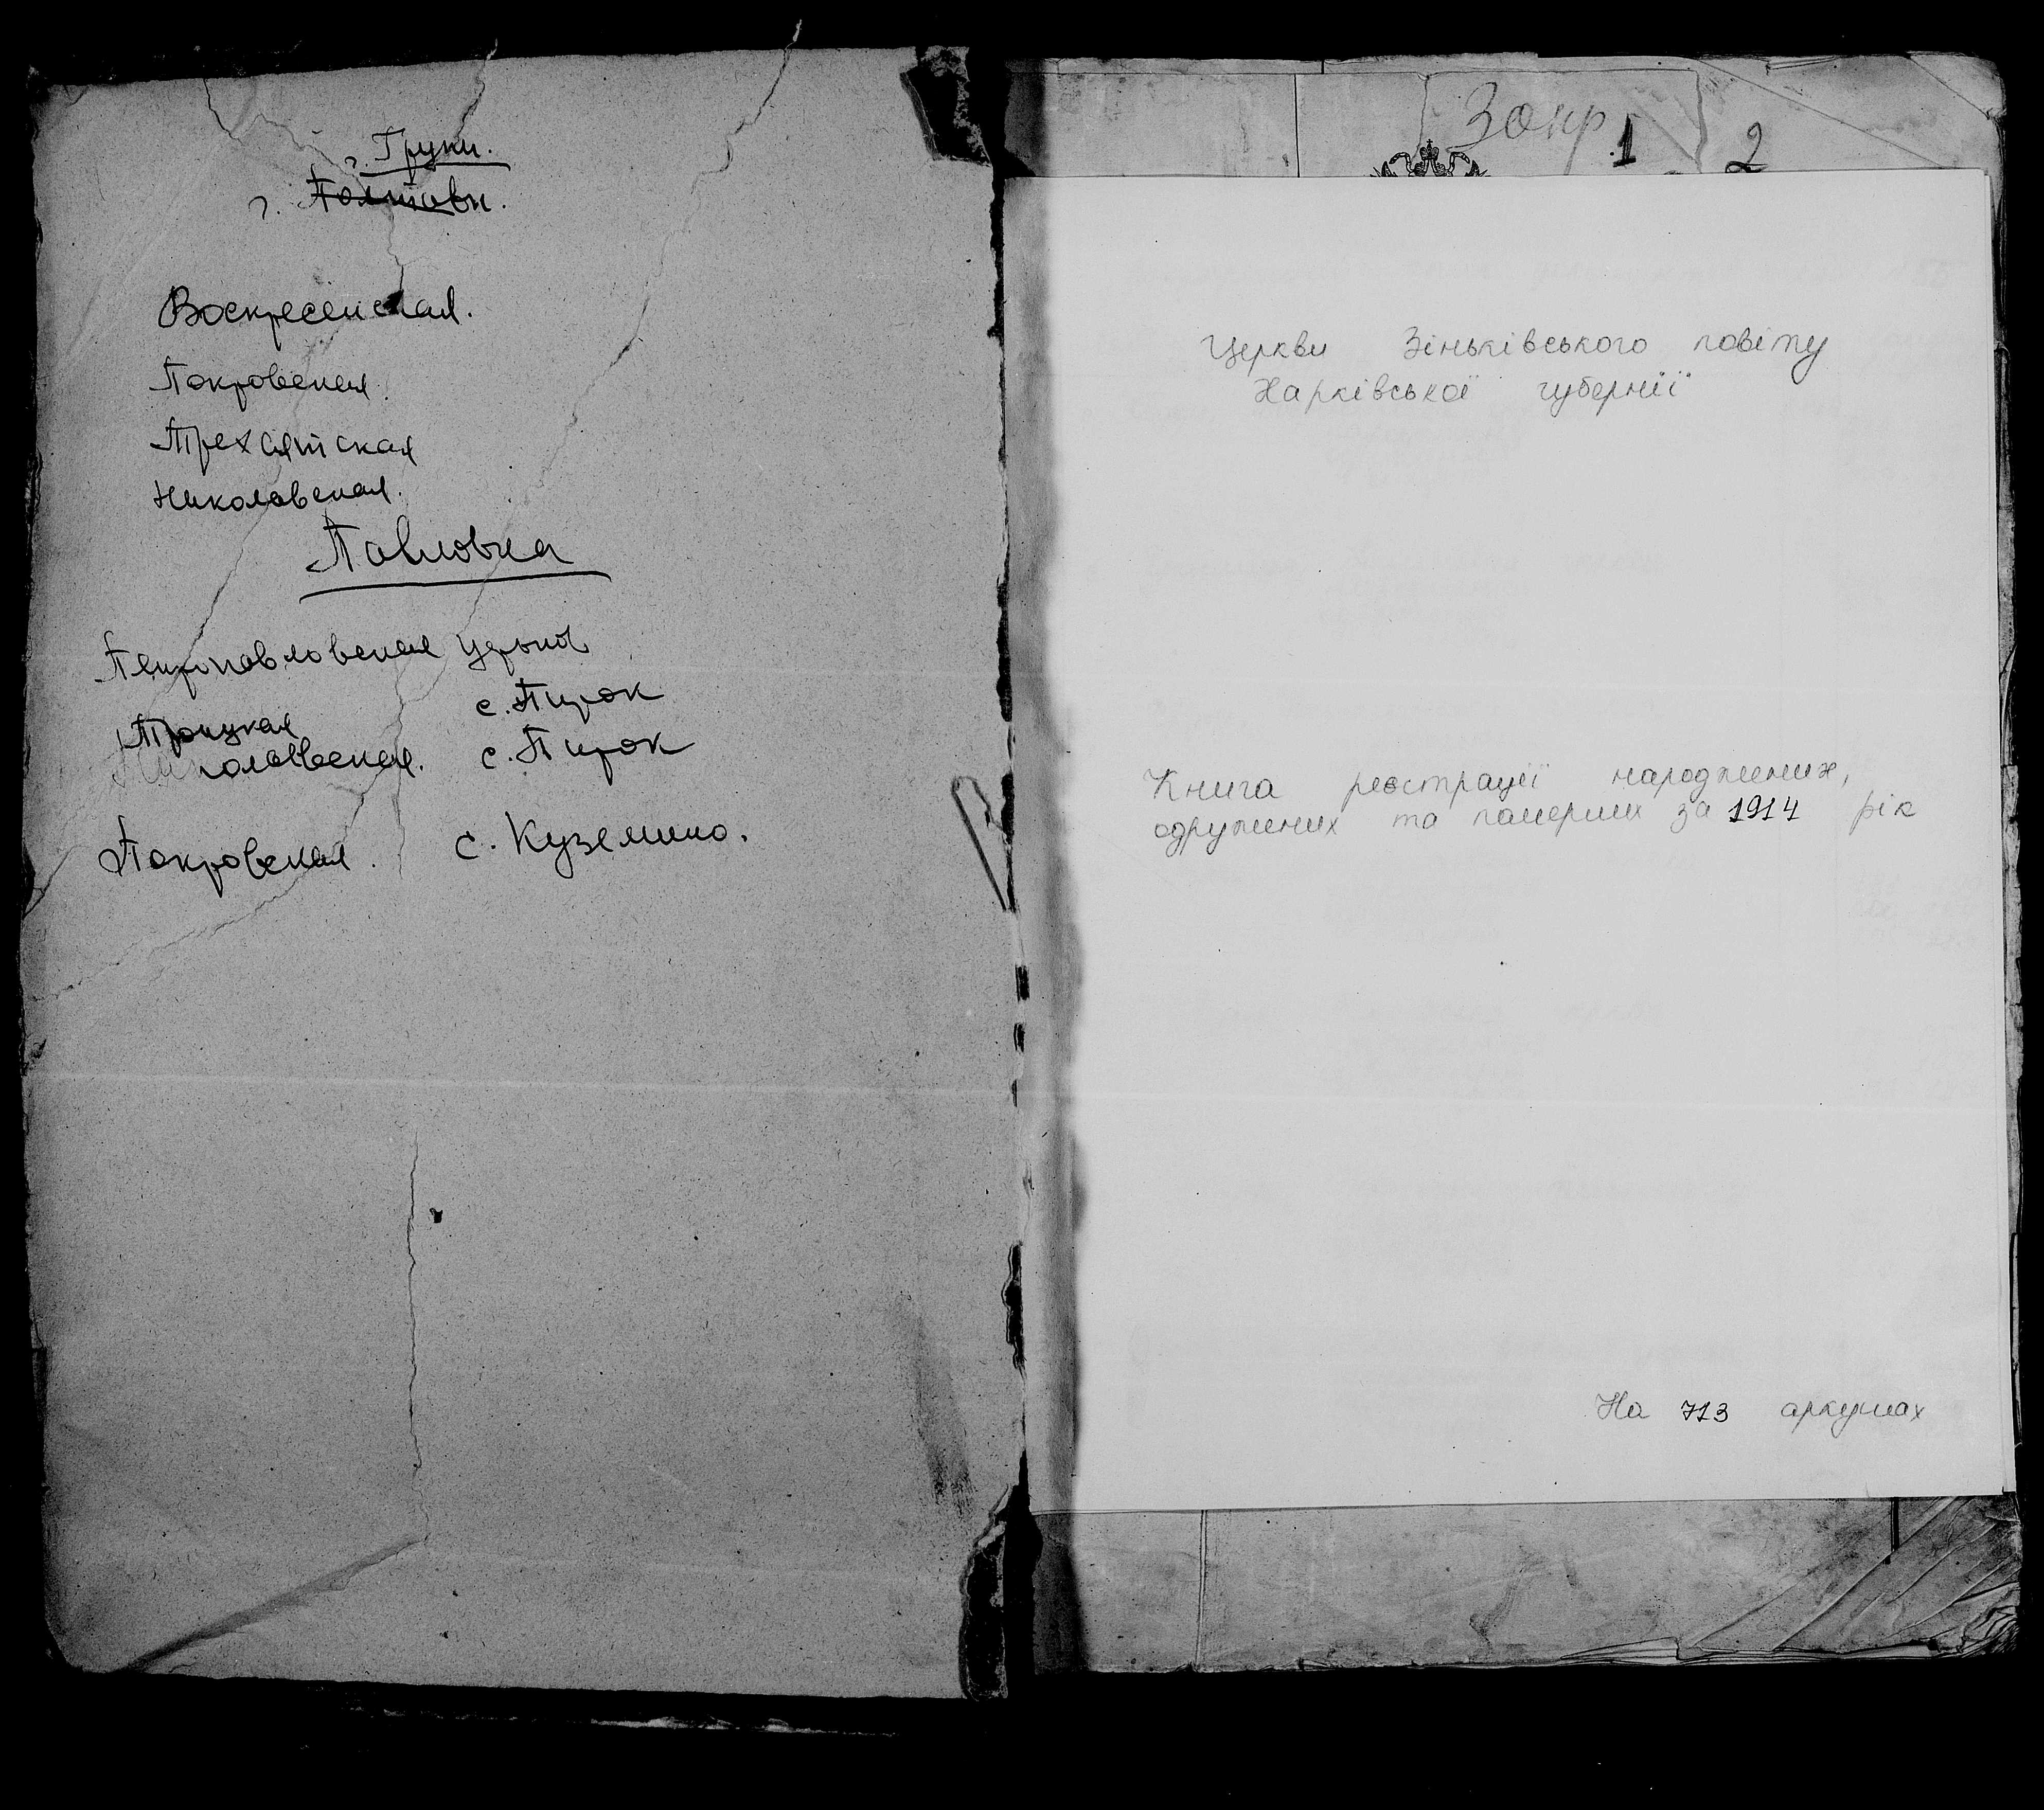 г. Груни.
г. Полтавы.
Воскресенская.
Покровская.
Трехсвятская
Николавская.
Павловка
Петропавловская церковь
с. Пирок
Троицкая
Николаевская. с. Пирок
Покровская. с. Куземино.
1 2
Церкви Зіньківського повіту
Харківської губернії
Книга реєстрації народжених,
одружених та памерших за 1914 рік
На 713 аркушах